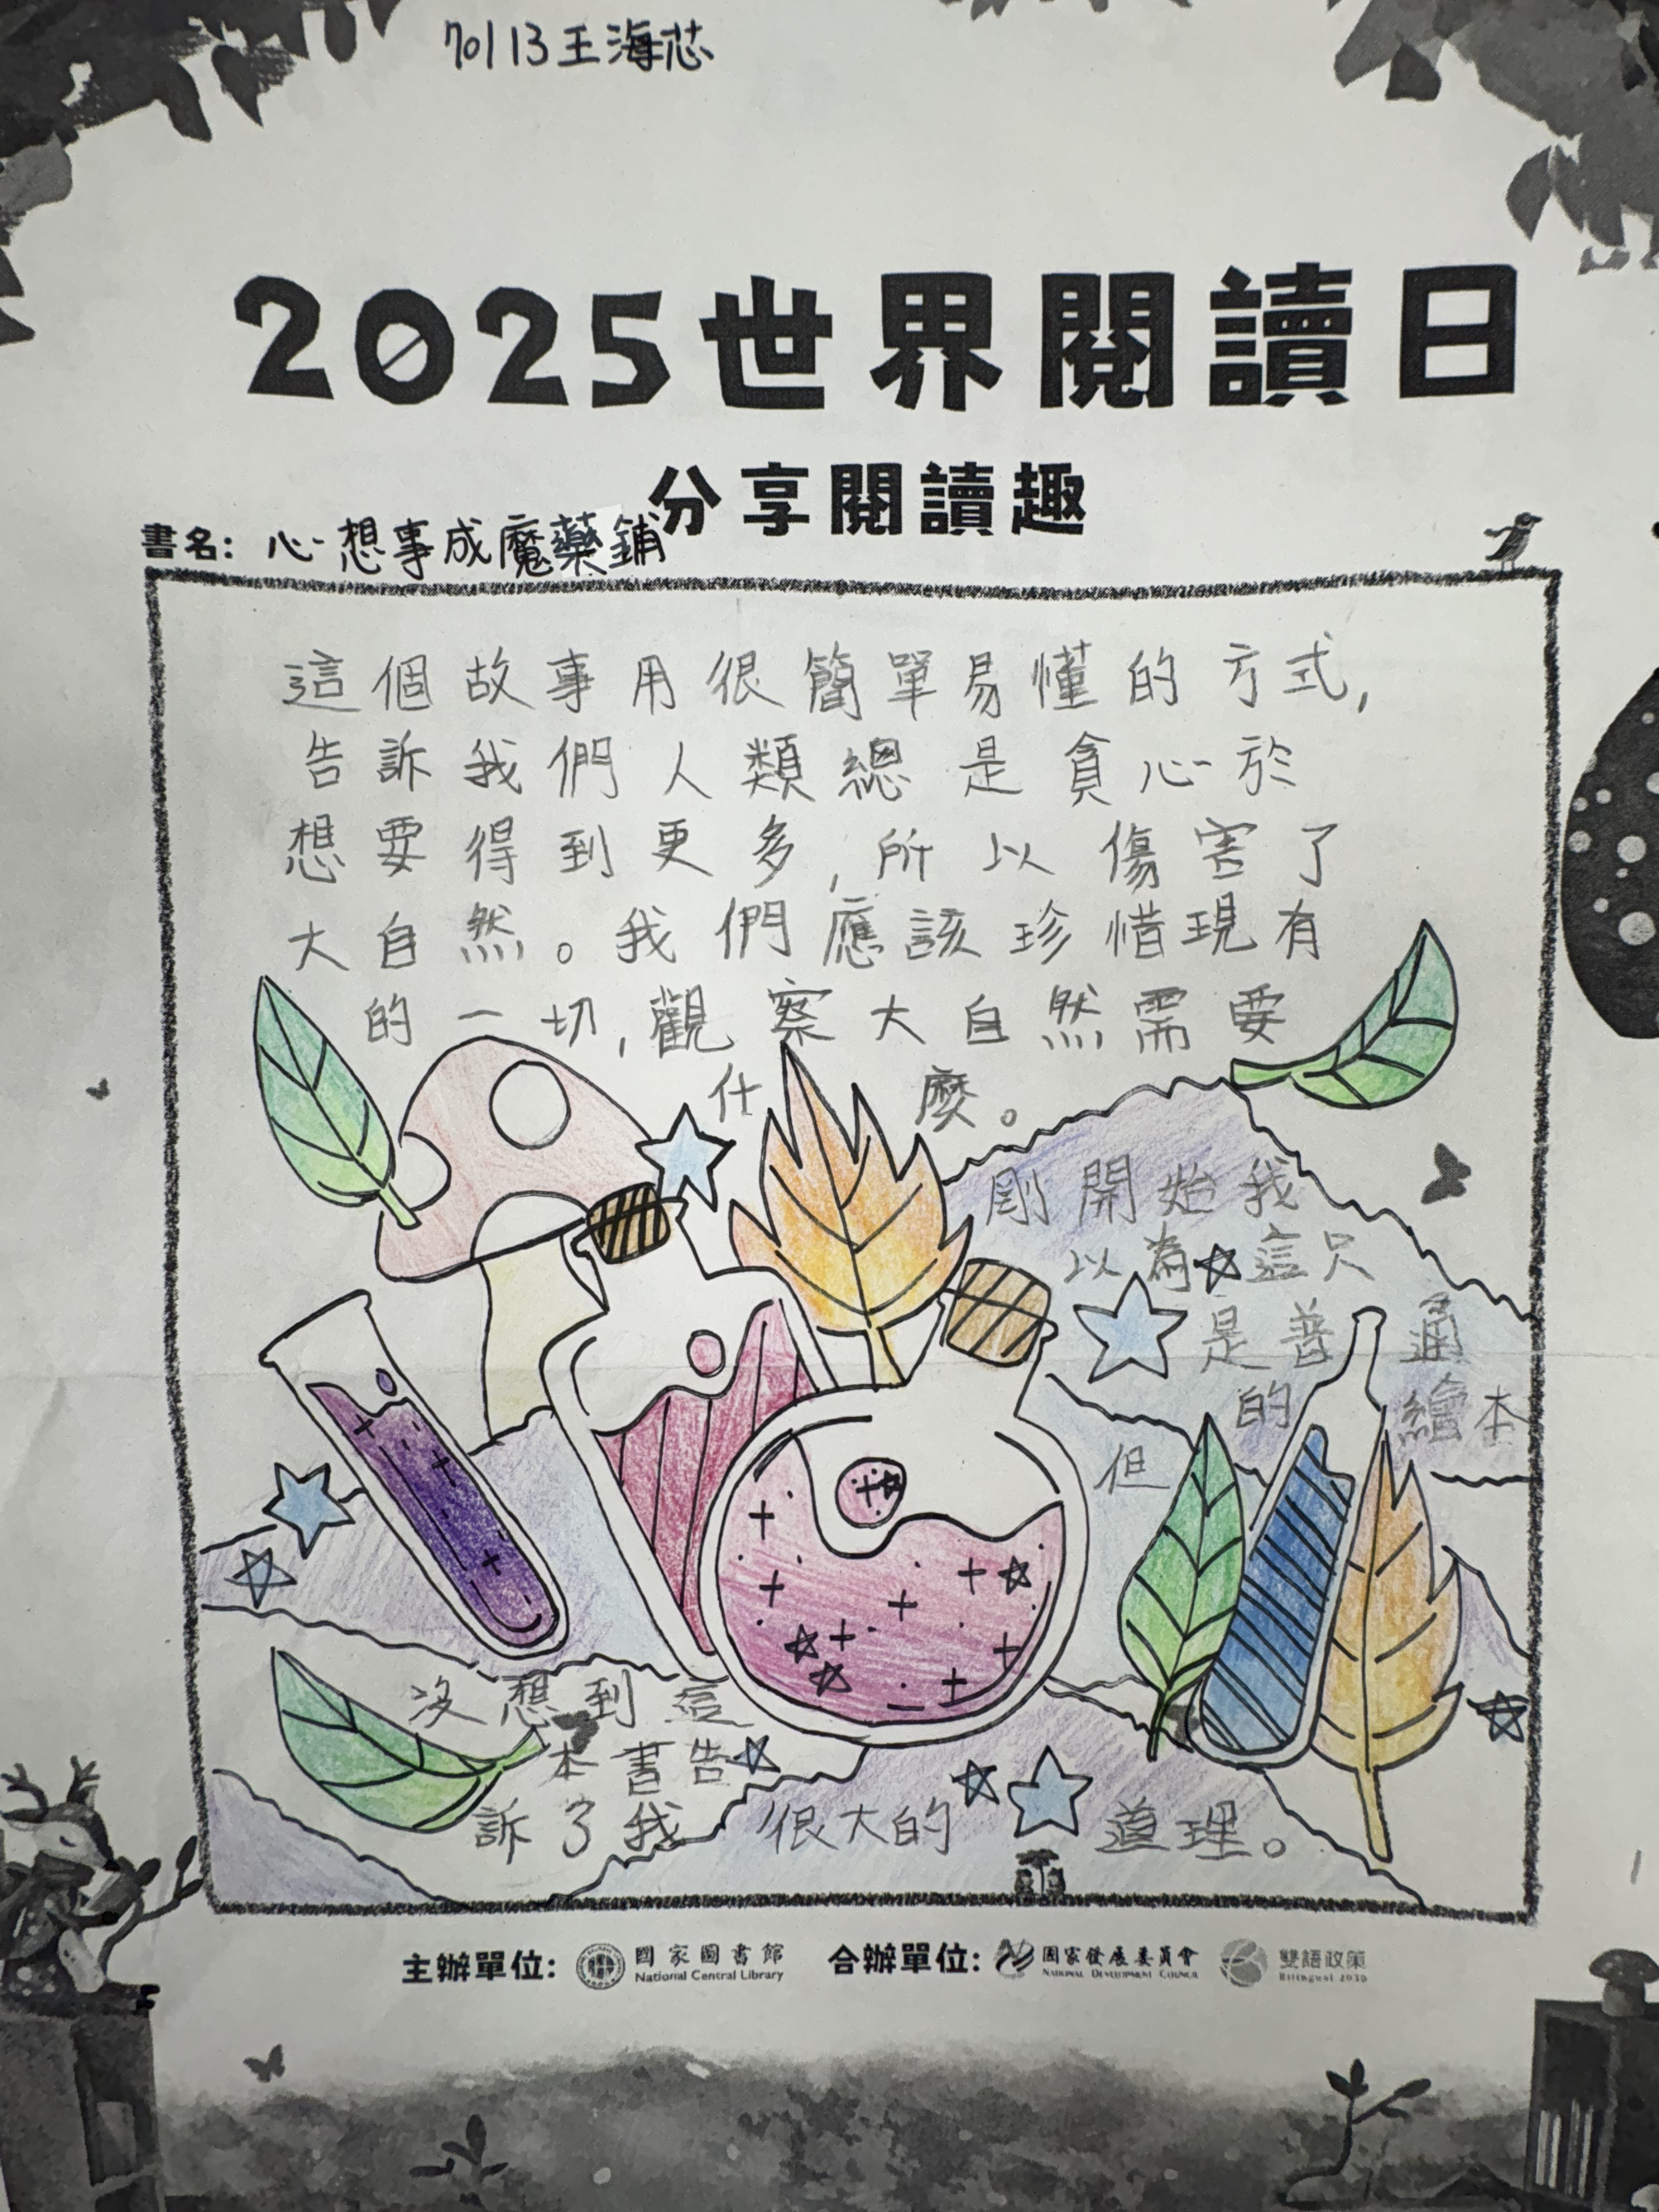 70113王海芯
2025世界閱讀日
分享閱讀趣
書名：心想事成魔藥鋪
這個故事用很簡單易懂的方式，
告訴我們人類總是貪心於
想要得到更多，所以傷害了
大自然。我們應該珍惜現有
的一切，觀察大自然需要
什麼。
剛開始我
以為這只
是普通
的繪本
但
沒想到這
本書告
訴了我很大的道理。
主辦單位：國家圖書館 National Central Library 合辦單位：國家發展委員會 NATIONAL DEVELOPMENT COUNCIL 雙語政策 Bilingual 2030